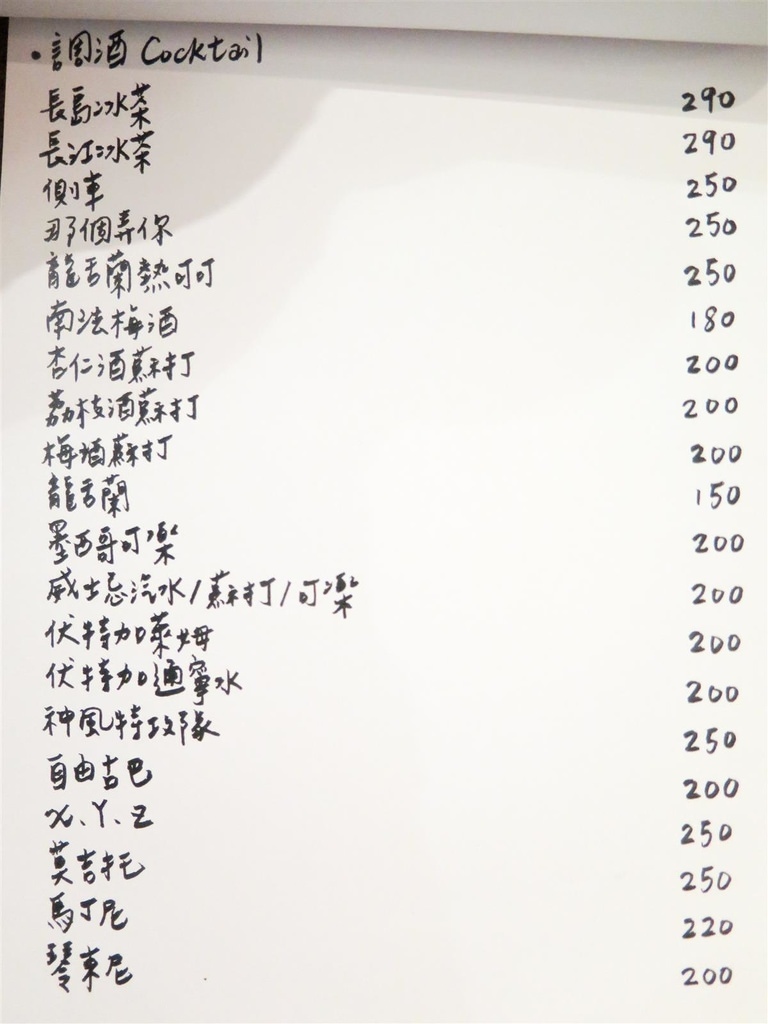 ·調酒 Cocktail
長島冰茶 290
長江冰茶 290
側車 250
那個弄你 250
龍舌蘭熱可可 250
南法梅酒 180
杏仁酒蘇打 200
荔枝酒蘇打 200
梅酒蘇打 200
龍舌蘭 150
墨西哥可樂 200
威士忌汽水/蘇打/可樂 200
伏特加萊姆 200
伏特加通寧水 200
神風特攻隊 250
自由古巴 200
X、Y、Z 250
莫吉托 250
馬丁尼 220
琴東尼 200